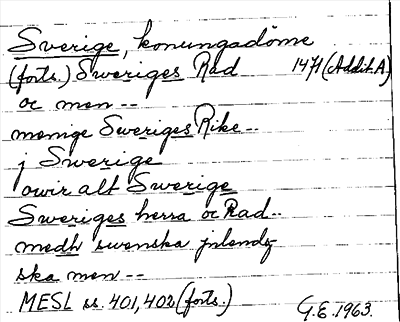 Sverige, konungadöme
(forts.) Sweriges Rad 1471 (Addit. A)
oc men --
menige Sweriges Rike --
j Swerige
owir alt Swerige
Sweriges herra oc Rad --
medh swenska jnlendz
ska men --
MESL ss. 401, 402 (forts.)
G.E. 1963.